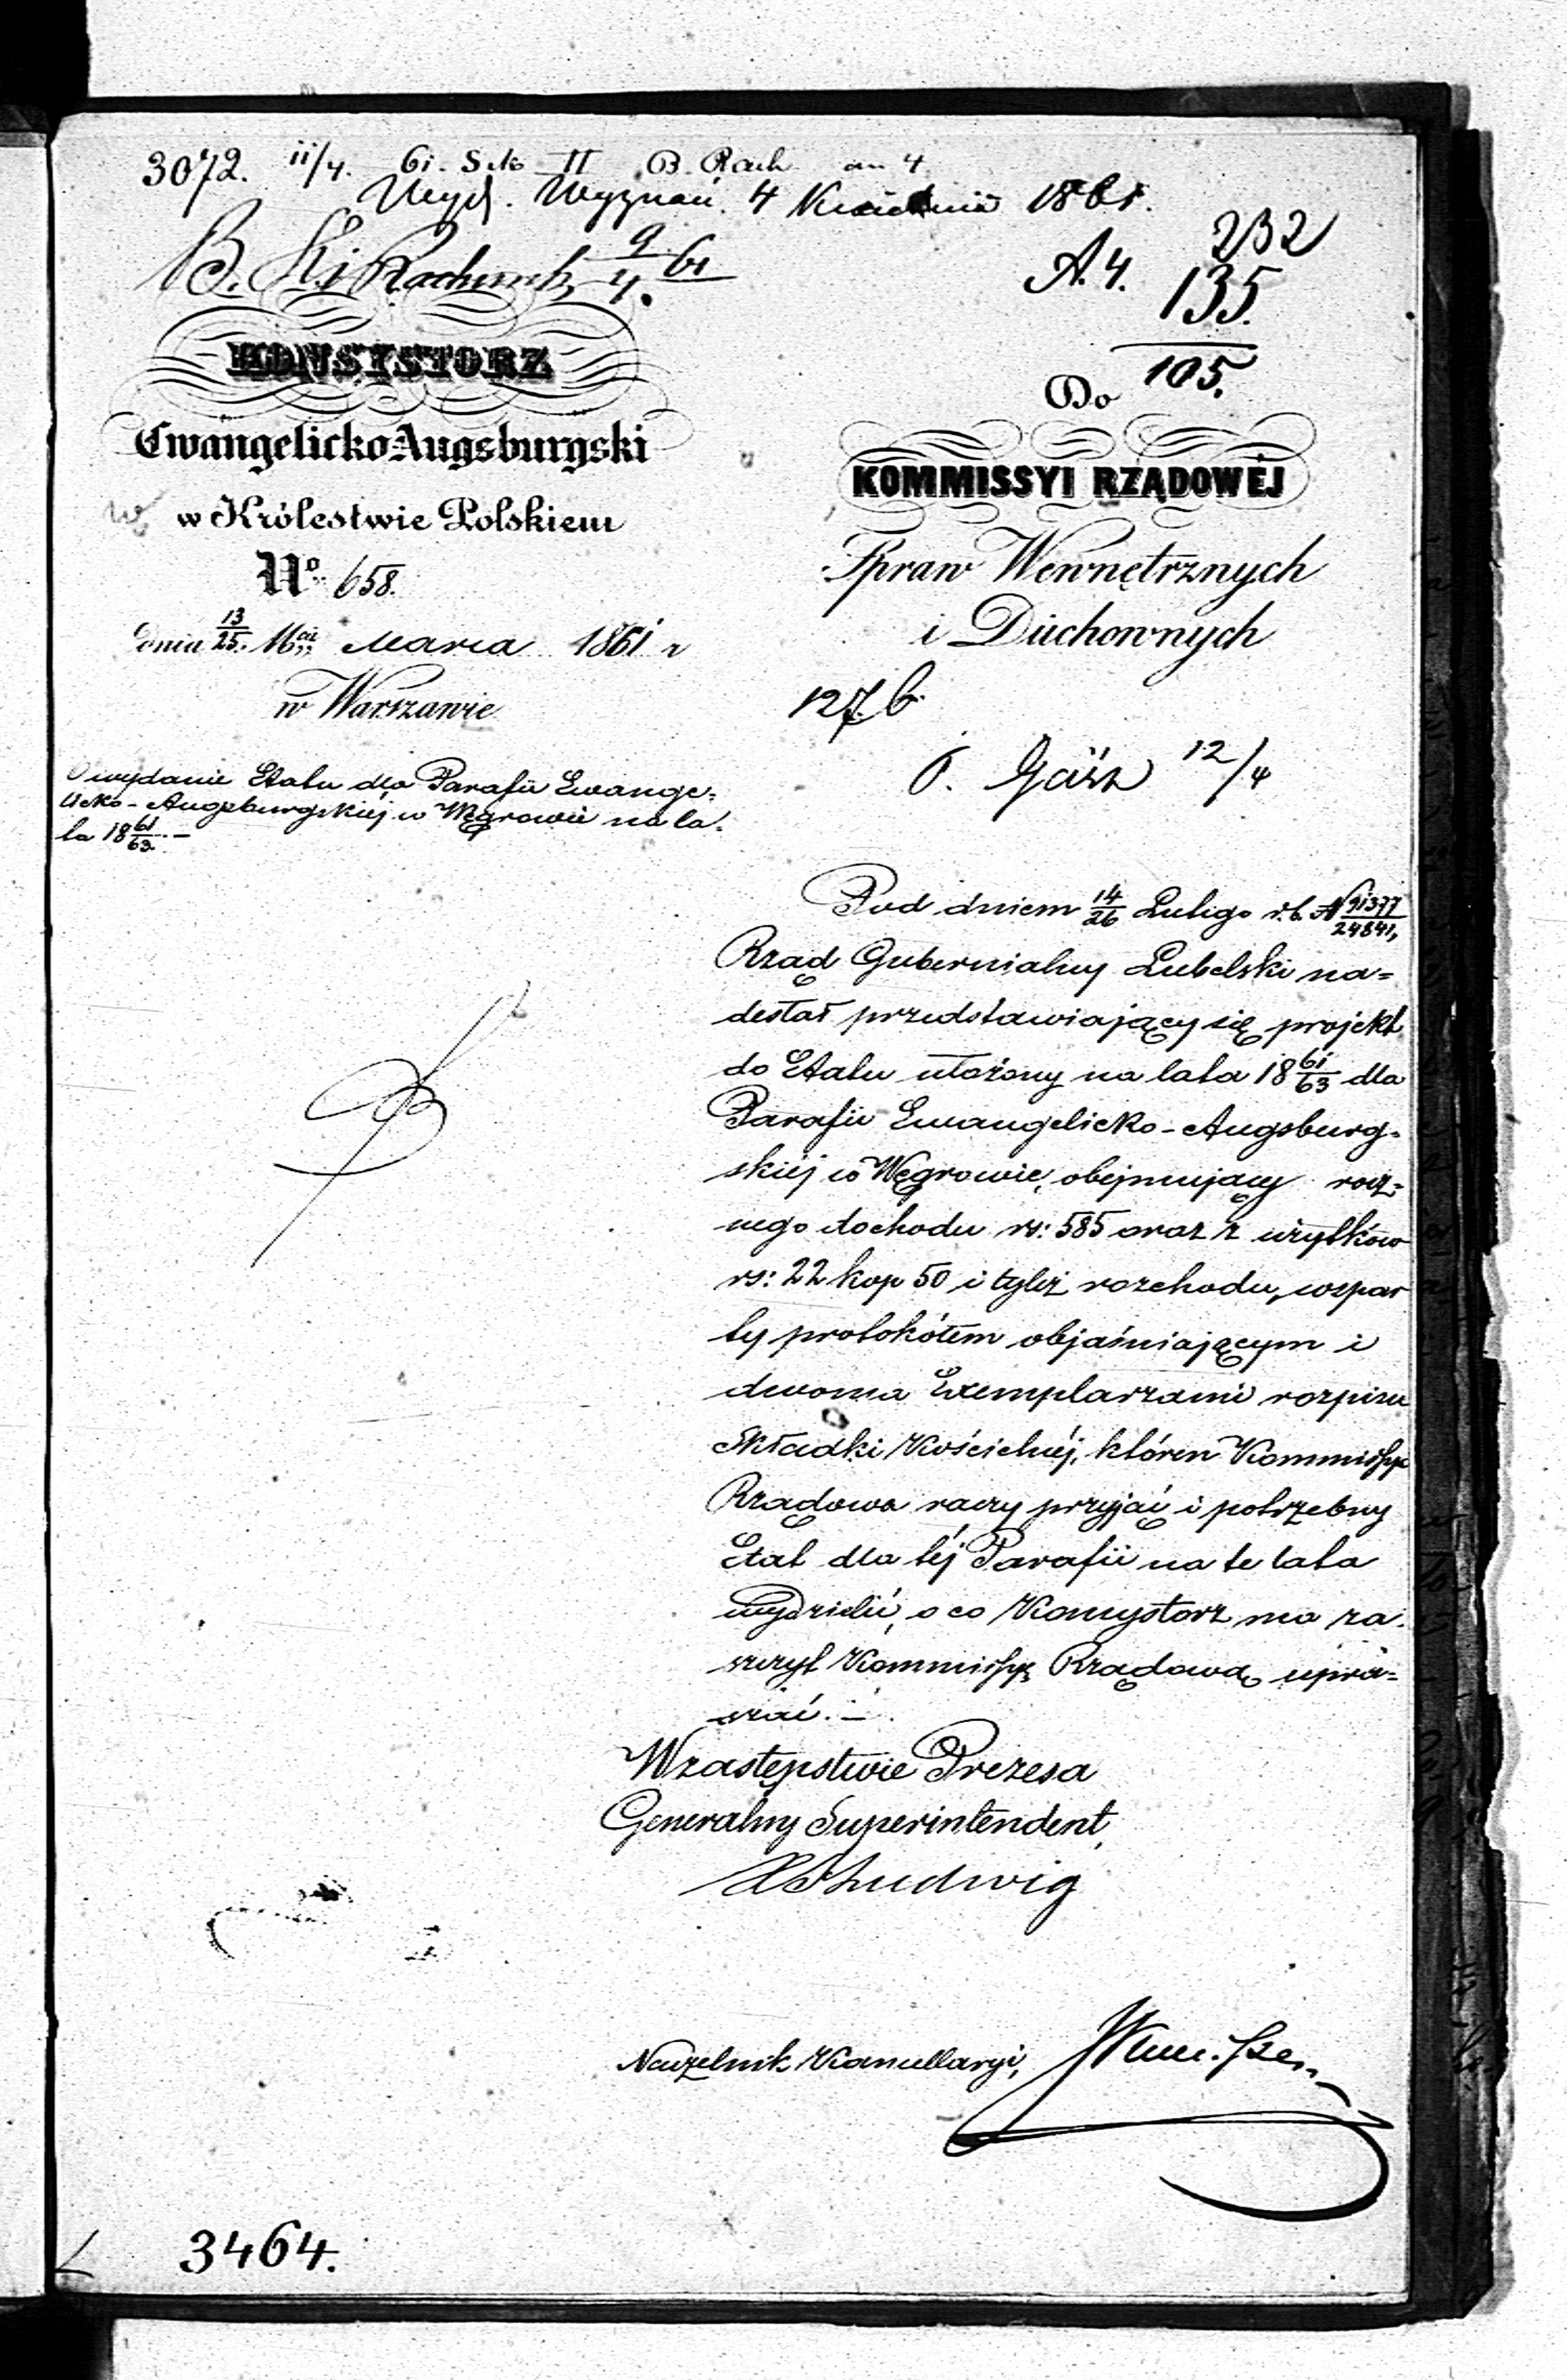 3072. 11/4. 61. Sek II B. Rach
Wyd. Wyznań. 4 Kwietnia 1861.
B. 9/4. 61
A. 4. 232
135.
105.
KONSYSTORZ
Ewangelicko Augsburgski
w Królestwie Polskiem
No 658.
dnia 13/25. Marca 1861 r
w Warszawie
O wydanie Etatu dla Parafii Ewange=
licko-Augsburgskiej w Węgrowie na la=
ta 18 61/63. —
Do
KOMMISSYI RZĄDOWÉJ
Spraw Wewnętrznych
i Duchownych
127. b.
12/4
Pod dniem 14/26 Lutego r. b. N 91377/24841,
Rząd Gubernialny Lubelski na=
desłał przedstawiający się projekt
do Etatu ułożony na lata 18 61/63 dla
Parafii Ewangelicko-Augsburg=
skiej w Węgrowie, obejmujący rocz=
nego dochodu rs: 585 oraz z użytków
rs: 22 kop 50 i tyleż rozchodu, wspar
ty protokółem objaśniającym i
dwoma Exemplarzami rozpisu
Składki Kościelnéj, któren Kommissya
Rządowa raczy przyjąć i potrzebny
Etat dla téj Parafii na te lata
wydzielić, o co Konsystorz ma za=
szczyt Kommissyą Rządową upra=
szać. —
W zastępstwie Prezesa
Generalny Superintendent,
Ludwig
Naczelnik Kancellaryi,
3464.